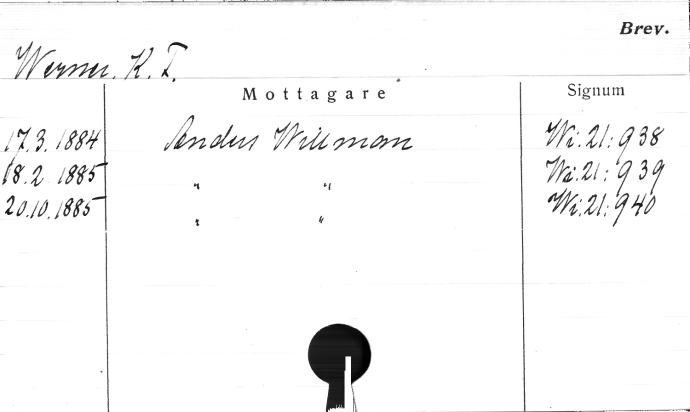 Brev.
Werner, K. F.
Mottagare Signum
17.3.1884 Anders Willman Wi.21:938
18.2 1885 " " Wi.21:939
20.10.1885 " " Wi.21:940